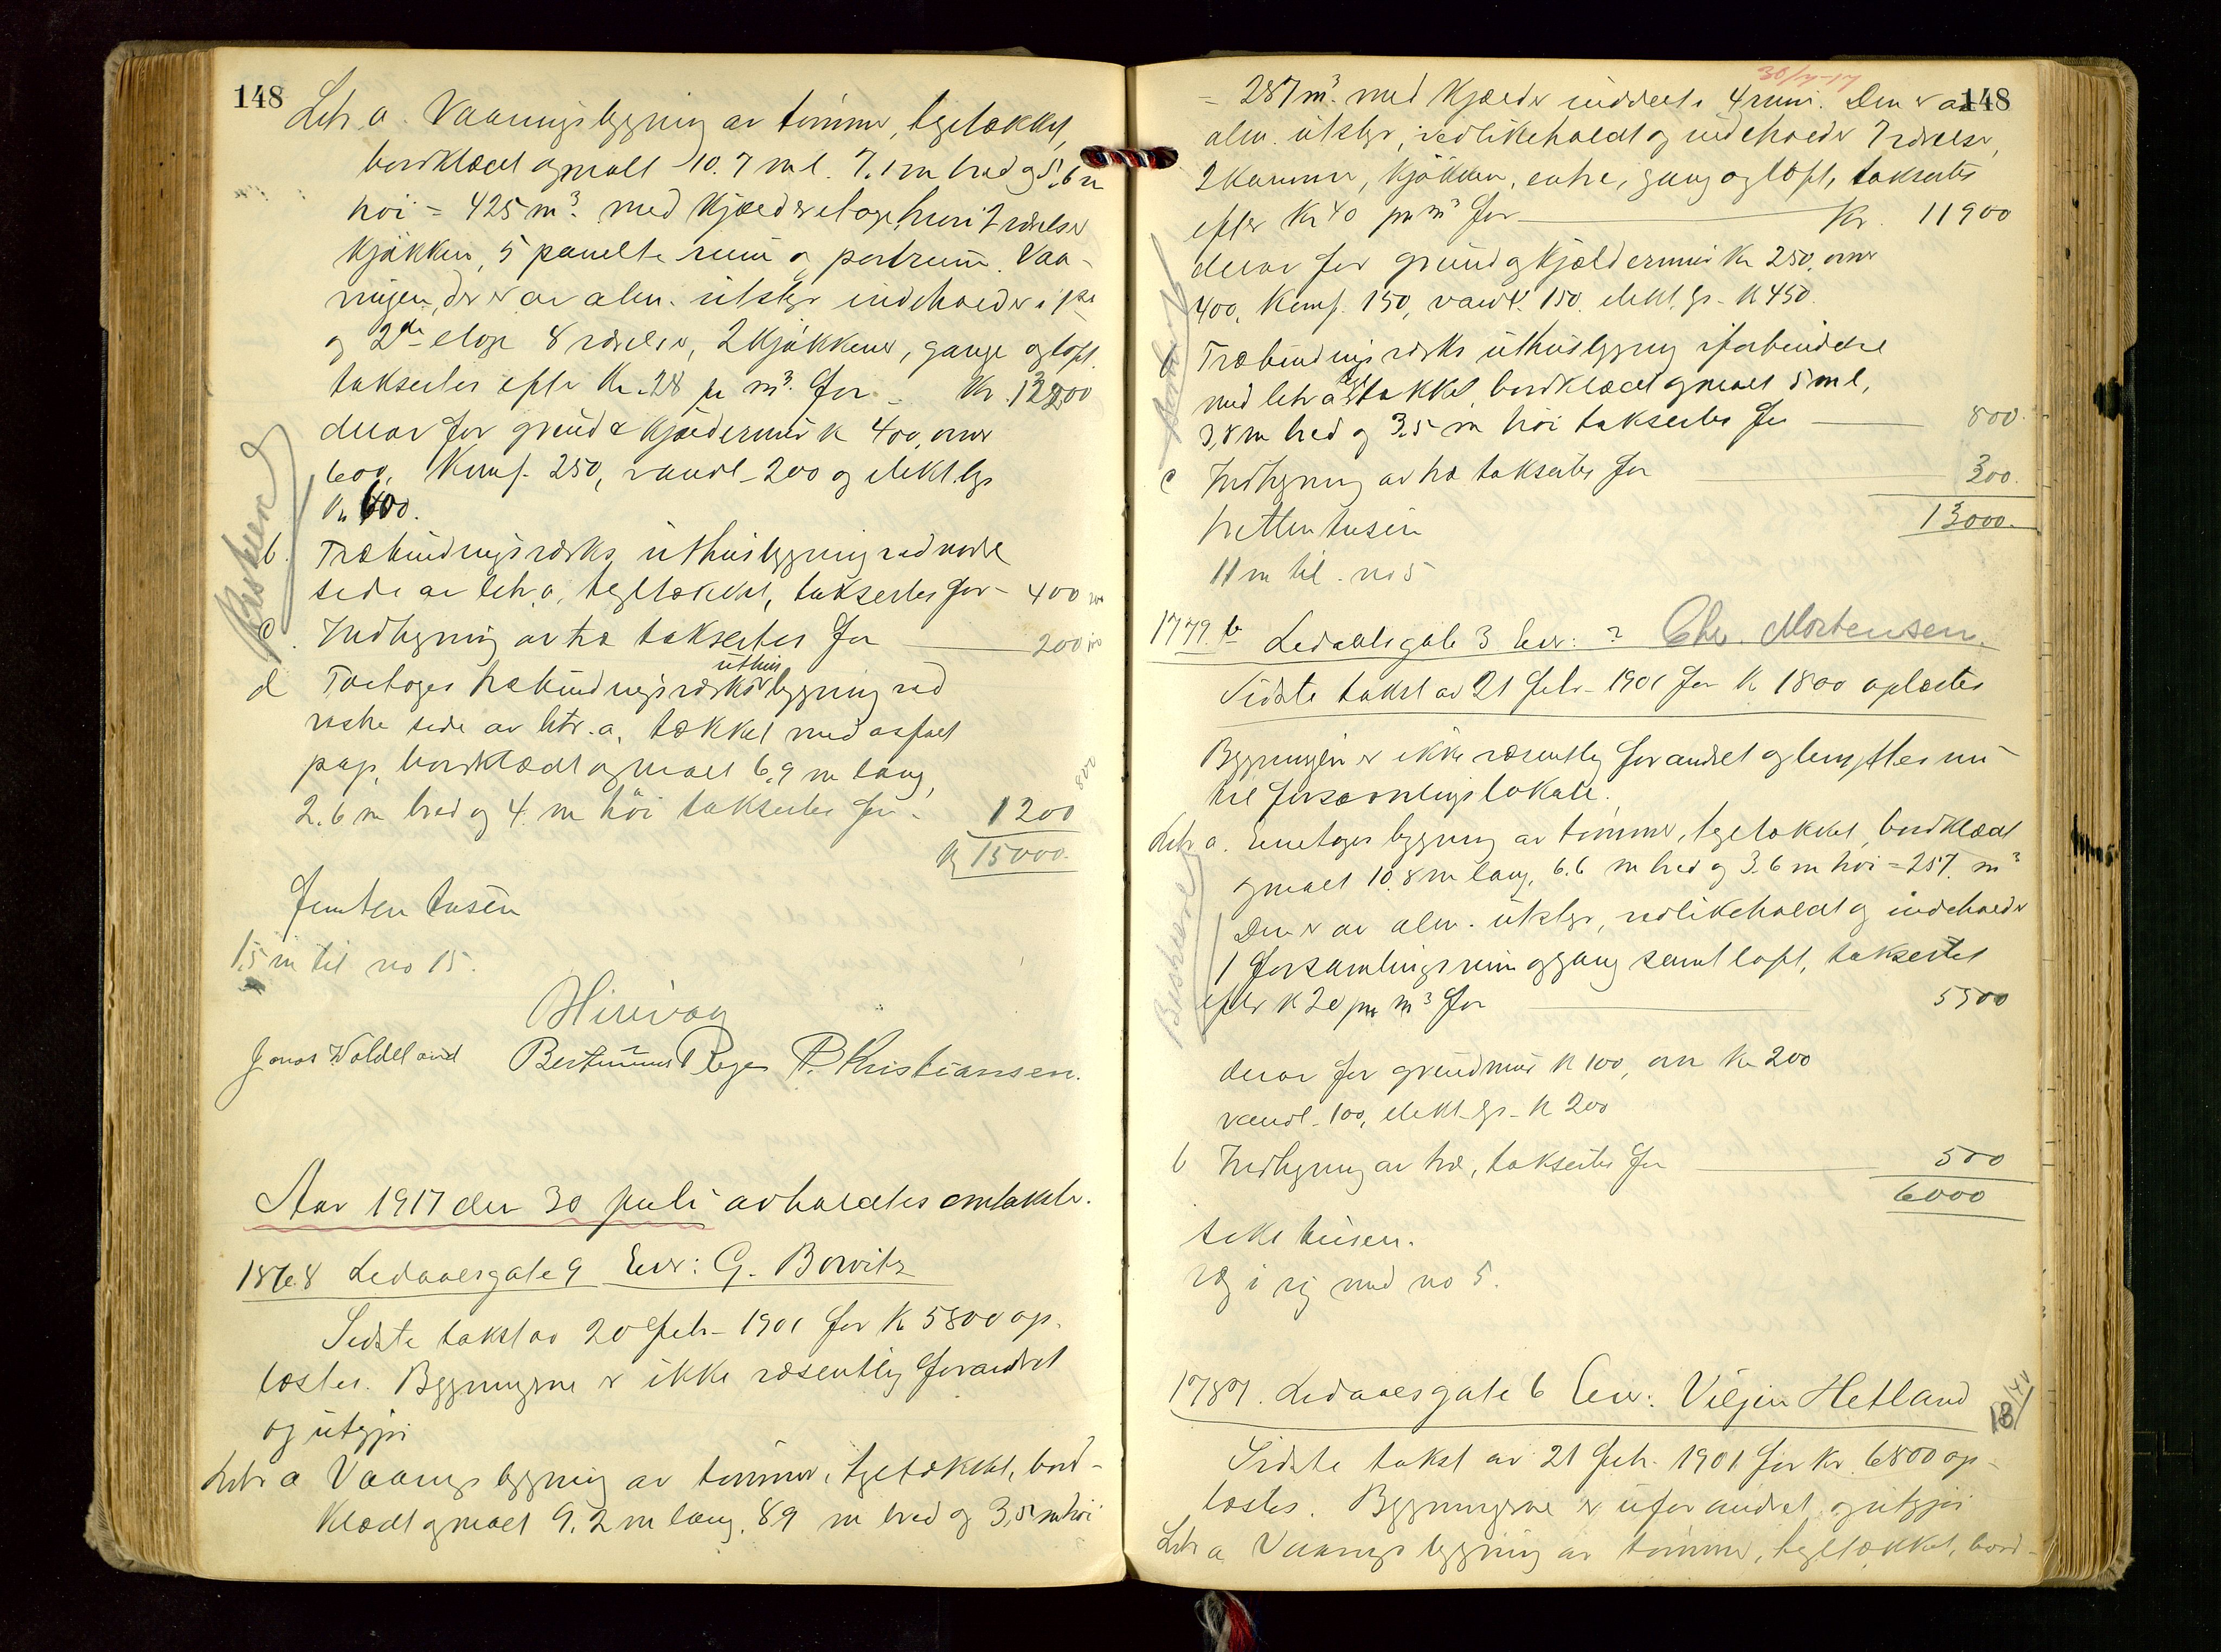 148
Litr. a. Vaaningsbygning av tømmer, tegltækket,
bordklædt og malt 10.7 m l. 7.1 m bred og 5.6 m
høi = 425 m³. med kjælderetage hvori 2 værelser
kjøkken, 5 panelte rum og portrum. Vaa-
ningen, der er av alm. utstyr indeholder i 1ste
og 2den etage 8 værelser, 2 kjøkkener, gange og loft.
takseres efter Kr. 28 pr m³. for - Kr. 13200
derav for grund & kjældermur k 400, ovner
600, Komf. 250, vandl - 200 og elekt. lys
Kr 600.
b. Træbindingsverks uthusbygning ved nordre
side av litr. a, tegltækket, takseres for - 400
c. Indhegning av træ takseres for 200
d Toetages træbindingsverks uthusbygning ved
vestre side av litr. a, tækket med asfalt
pap, bordklædt og malt 6.9 m lang,
2.6 m bred og 4. m høi takseres for - 1200
800
K 15000.
Femten tusen
1.5 m til no 15.
Jonas Voldeland P. Kristiansen.
Aar 1917 den 30 juli avholdtes omtakst.
1868 Ledaalsgate 9 Eier: G. Borvitz
Sidste takst av 20 Feb - 1901 for K 5800 op-
læstes. Bygningerne er ikke væsentlig forandret
og utgjør
Litr a Vaaningsbygning av tømmer, tegltækket, bord-
klædt og malt 9.2 m lang, 8.9 m bred og 3,5 m høi
30/7-17
148
= 287 m³. med kjælder inddelt i 4 rum. Den er av
alm. utstyr, vedlikeholdt og indeholder 7 værelser,
2 kammer, kjøkken, entre, gang og loft, takseres
efter Kr 40 pr m³ for Kr. 11900
derav for grund og kjældermur Kr 250, ovner
400, Komf. 150, vandl. 150. elekt. lys - K 450.
b Træbindingsverks uthusbygning i forbindelse
med litr a tegltækket, bordklædt og malt 5 m l,
3,8 m bred og 3.5 m høi takseres for 800.
c Indhegning av træ takseres for 300.
13000.
tretten tusen
11 m til no 5
1779.b Ledaalsgate 3 Eier: ? Chr. Mortensen.
Sidste takst av 21 Feb - 1901 for K 1800 oplæstes
Bygningen er ikke væsentlig forandret og benyttes nu
til forsamlingslokale.
Litr a. Enetages bygning av tømmer, tegltækket, bordklædt
og malt 10.8 m lang, 6.6 m bred og 3.6 m høi = 257. m³
Den er av alm. utstyr, vedlikeholdt og indeholder
1 forsamlingsrum og gang samt loft, takseret
efter K 20 pr m³ for 5500
derav for grundmur K 100, ovn Kr 200
vandl. 100, elekt. lys - K 200
b Indhegning av træ, takseres for 500
6000
seks tusen.
væg i væg med no 5.
1787. Ledaalsgate 6 Eier: Viljen Hetland
Sidste takst av 21 Feb. 1901 for Kr. 6800 op-
læstes. Bygningerne er uforandret og utgjør
Litr a Vaaningsbygning av tømmer, tegltækket, bord-